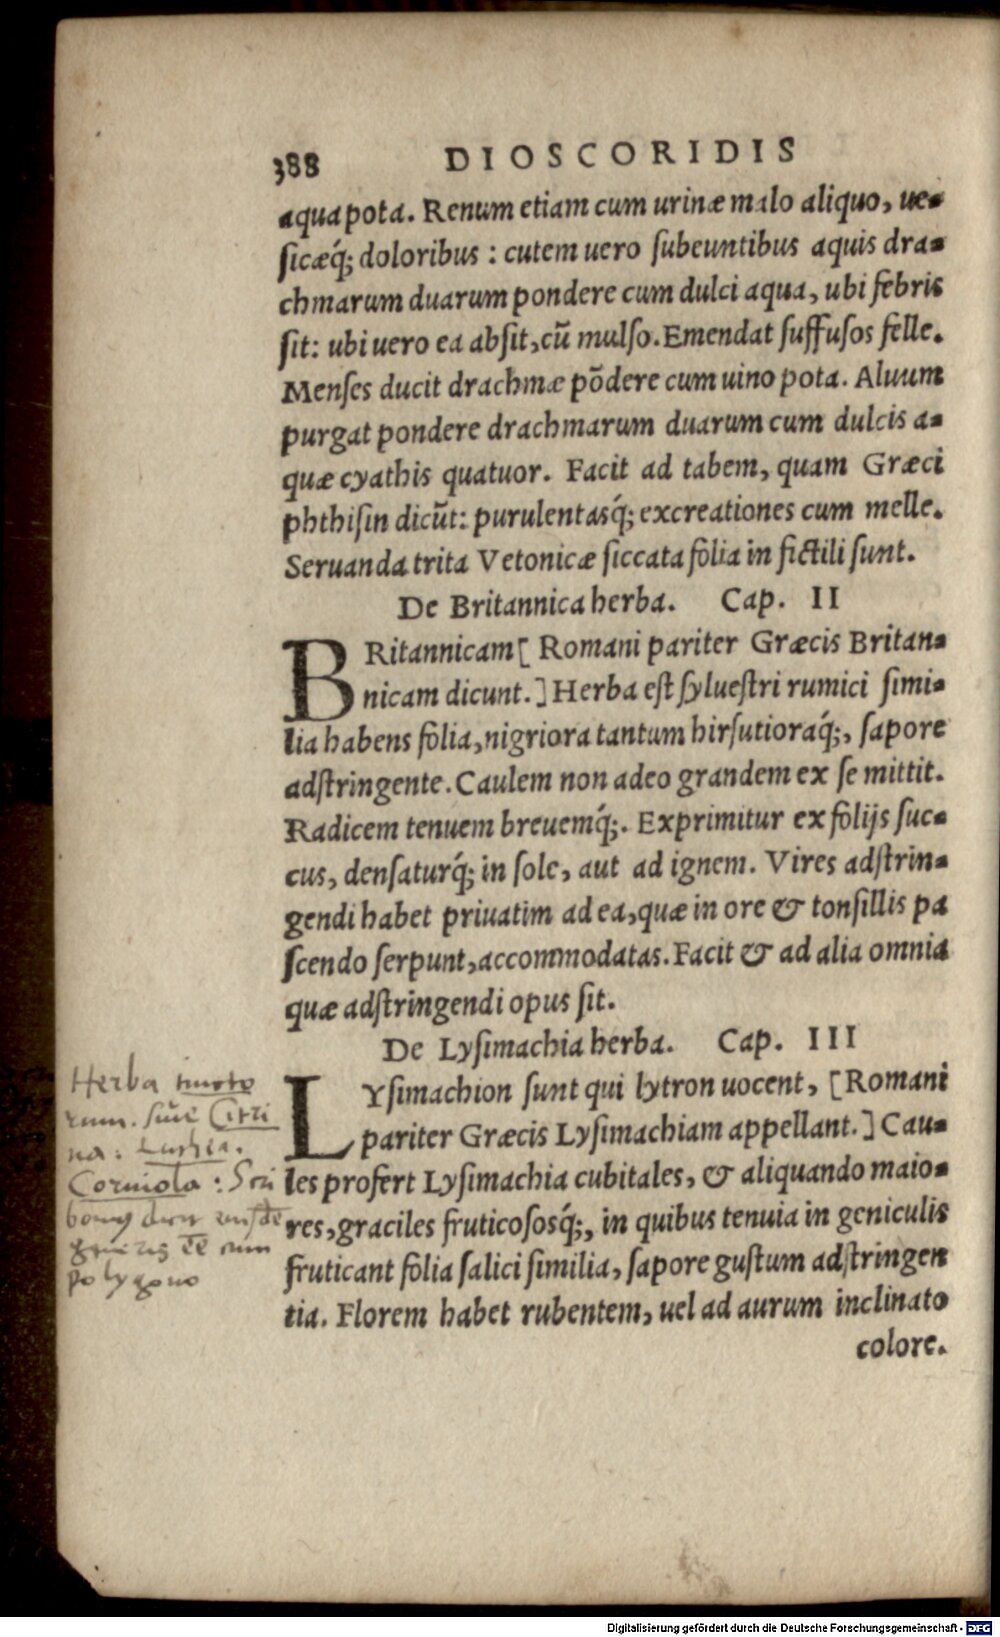 388 DIOSCORIDIS
aqua pota. Renum etiam cum urinæ malo aliquo, ue-
ſicæq́; doloribus : cutem uero ſubeuntibus aquis dra-
chmarum duarum pondere cum dulci aqua, ubi febris
ſit: ubi uero ea abſit, cū mulſo. Emendat ſuffuſos felle.
Menſes ducit drachmæ pōdere cum uino pota. Aluum
purgat pondere drachmarum duarum cum dulcis a-
quæ cyathis quatuor. Facit ad tabem, quam Græci
phthiſin dicūt: purulentasq́; excreationes cum melle.
Seruanda trita Vetonicæ ſiccata folia in fictili ſunt.
De Britannica herba. Cap. II
BRitannicam [ Romani pariter Græcis Britan-
nicam dicunt. ] Herba eſt ſylueſtri rumici ſimi-
lia habens folia, nigriora tantum hirſutioraq́;, ſapore
adſtringente. Caulem non adeo grandem ex ſe mittit.
Radicem tenuem breuemq́;. Exprimitur ex folijs ſuc-
cus, denſaturq́; in ſole, aut ad ignem. Vires adſtrin-
gendi habet priuatim ad ea, quæ in ore & tonſillis pa
ſcendo ſerpunt, accommodatas. Facit & ad alia omnia
quæ adſtringendi opus ſit.
De Lyſimachia herba. Cap. III
LYſimachion ſunt qui lytron uocent, [ Romani
pariter Græcis Lyſimachiam appellant. ] Cau-
les profert Lyſimachia cubitales, & aliquando maio-
res, graciles fruticoſosq́;, in quibus tenuia in geniculis
fruticant folia ſalici ſimilia, ſapore guſtum adſtringen
tia. Florem habet rubentem, uel ad aurum inclinato
colore.
Herba
Citri
na:
Corniola :
polygono
Digitalisierung gefördert durch die Deutsche Forschungsgemeinschaft - DFG